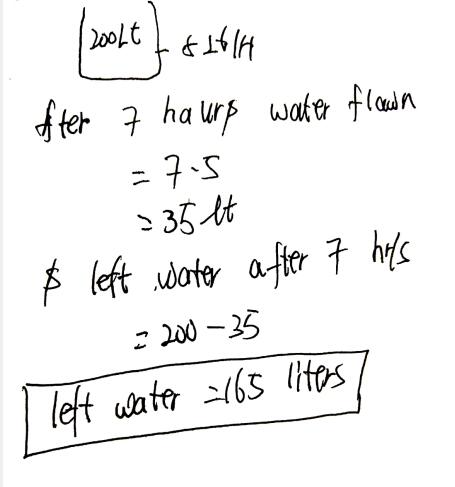 200Lt
After 7 haurs water flawn
= 7.5
= 35 lt
left water after 7 hrs
= 200-35
left water =165 liters